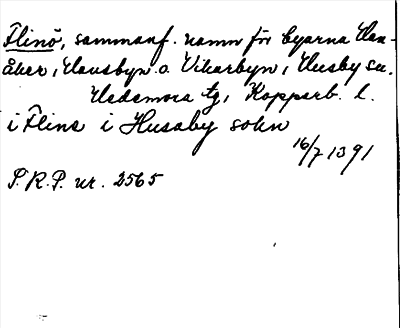 Flinö, sammanf. namn för byarna Han-
åker, Hansbyn o. Vikarbyn, Husby sn.
Hedemora tg, Kopparb. l.
i Flinö i Husaby sokn
16/7 1391
S.R.P. nr. 2565